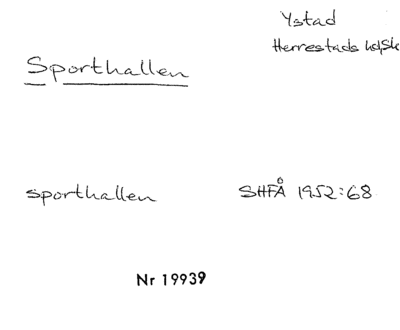 Ystad
Herrestads hd, Sk
Sporthallen
sporthallen SHFÅ 1952:68
Nr 19939